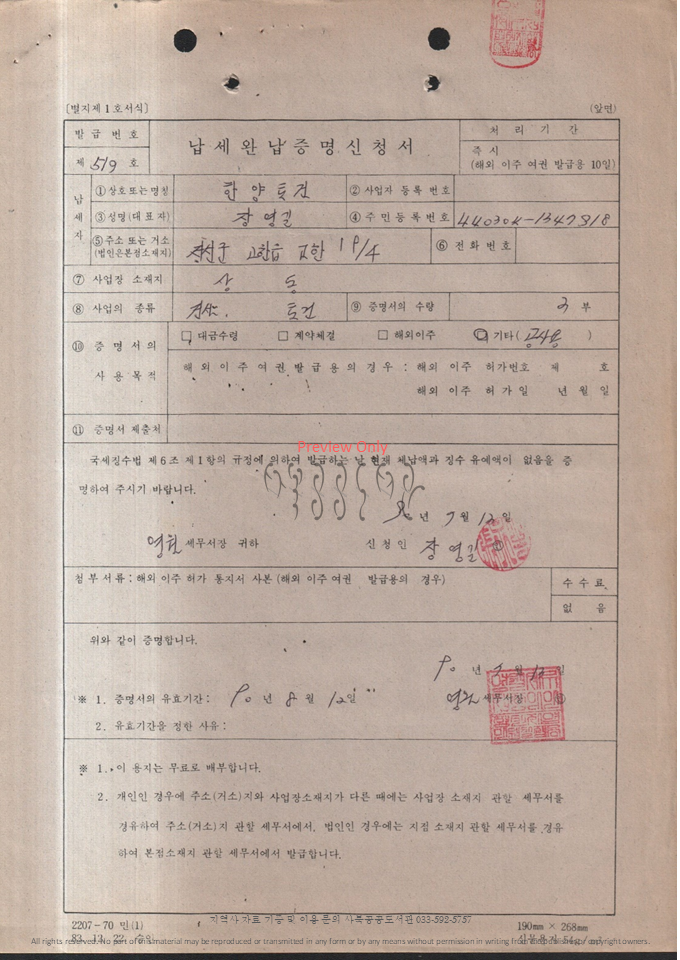 [별지제 1 호서식]
(앞면)
발 급 번 호
제 519 호
납세완납증명신청서
처 리 기 간
즉 시
(해외 이주 여권 발급용 10일)
납세자
① 상호또는명칭 한양토건
② 사업자 등록 번호
③ 성명(대표자) 장영길
④ 주민등록번호
⑤ 주소 또는 거소
(법인은본점소재지)
정선군 고한읍 고한 19/4
⑥ 전화 번호
⑦ 사업장 소재지 상 동
⑧ 사업의 종류 건설. 토건
⑨ 증명서의 수량 3 부
⑩ 증 명 서 의
사 용 목 적
□ 대금수령 □ 계약체결 □ 해외이주 □ 기타(공사용 )
해외이주여권발급용의경우 : 해외 이주 허가번호 제 호
해외 이주 허가일 년 월 일
⑪ 증명서 제출처
Preview Only
국세징수법 제6조 제1항의 규정에 의하여 발급하는 날 현재 체납액과 징수 유예액이 없음을 증
명하여 주시기 바랍니다.
년 7 월 12 일
영월 세무서장 귀하
신 청 인 장영길
첨부서류 : 해외 이주 허가 통지서 사본 (해외 이주 여권 발급용의 경우)
수 수 료
없 음
위와 같이 증명합니다.
90 년 7 월 12 일
※ 1. 증명서의 유효기간 : 90 년 8 월 12 일
영월 세무서장
2. 유효기간을 정한 사유 :
※ 1. 이 용지는 무료로 배부합니다.
2. 개인인 경우에 주소(거소)지와 사업장소재지가 다른 때에는 사업장 소재지 관할 세무서를
경유하여 주소(거소)지 관할 세무서에서, 법인인 경우에는 지점 소재지 관할 세무서를 경유
하여 본점소재지 관할 세무서에서 발급합니다.
지역사 자료 기증 및 이용 문의 사북공공도서관 033-592-5757
2207-70 민(1)
190mm × 268mm
83. 13. 22 승인
All rights reserved. No part of this material may be reproduced or transmitted in any form or by any means without permission in writing from the publishing / copyright owners.